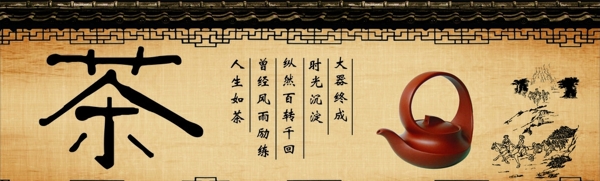 茶
大器终成
时光沉淀
纵然百转千回
曾经风雨励练
人生如茶